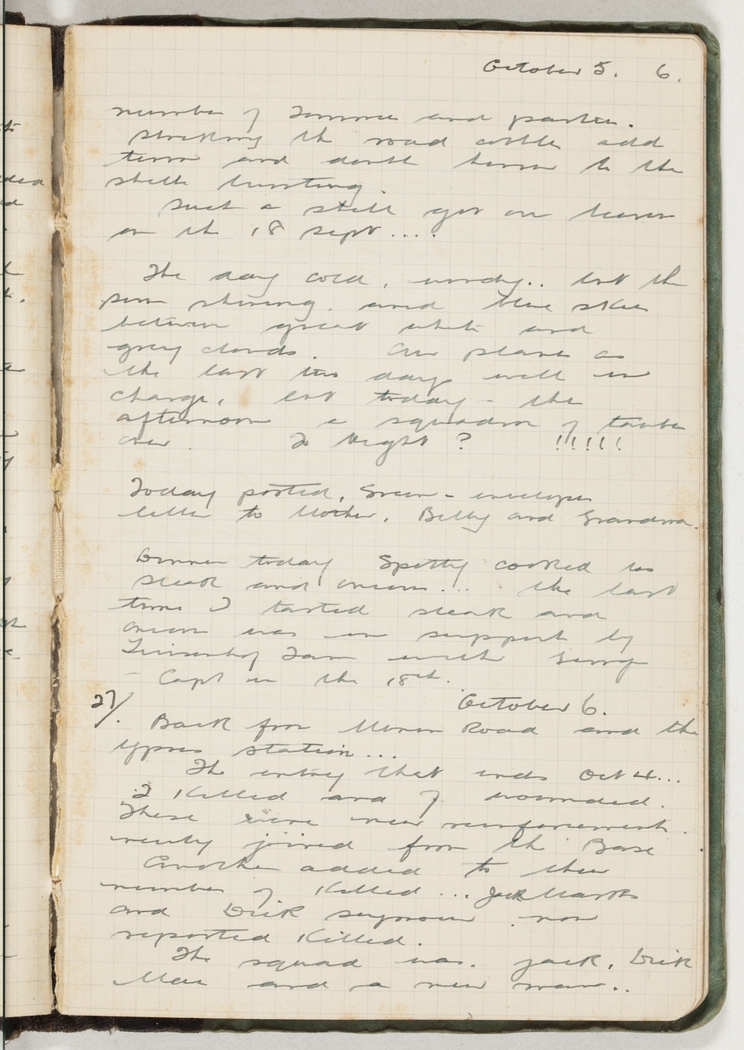 October 5. 6.
number of Tommies and parties.
Shelling the road cattle add
terror and death to the
shells bursting.
Such a shell got our
on the 18 Sept....
The day cold, windy.. but the
sun shining and blue skies
between great white and
grey clouds. Our planes as
the last two days well in
charge, but today – the
afternoon a squadron of taube
over To Night ? !!!!!
Today posted, Green – envelopes
letter to Mother, Billy and Grandma.
Dinner today Spotty cooked us
steak and onions.... the last
time I tasted steak and
onion was in support by
Farm with
– Capt in the 18th.
October 6.
27/.
Back from Menin Road and the
Ypres station...
The entry that ends Oct 4...
2 Killed and 7 wounded.
These were new reinforcements
newly joined from the Base
Another added to their
number of Killed... Jack Marks
and Dick Seymour now
reported Killed.
The squad was. Jack, Dick
Mac and a new man..